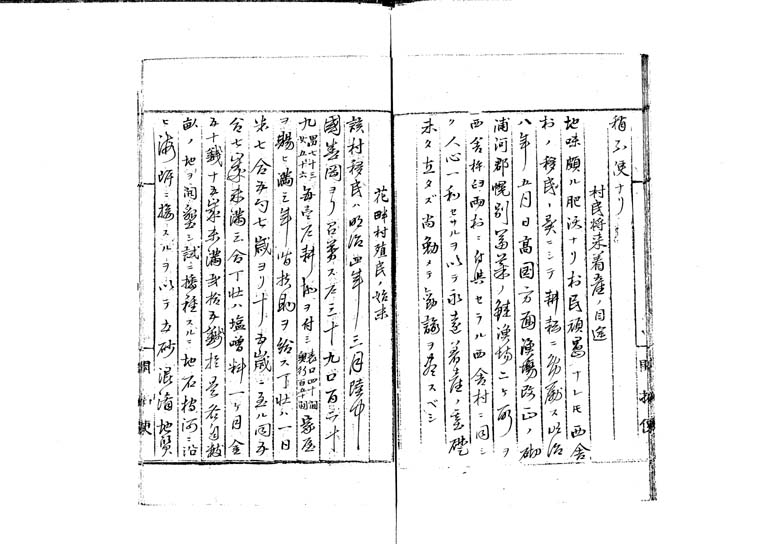 稍不便ナリ
村民将来着産ノ目途
地味頗ル肥沃ナリ村民頑愚ナレモ西舎
村ノ移民ト異ニシテ耕耘ニ勉励ス明治
八年五月日高国方面漁場改正ノ砌
浦河郡幌別ノ鮭漁場二ヶ所ヲ
西舎杵臼両村ニ付與セラル西舎村ニ同シ
ク人心一和セサルヲ以テ永遠着産ノ基礎
未タ立タズ尚勉メテ説諭ヲ尽スベシ
花畔村殖民ノ始末
該村移民ハ明治四年三月陸中
國盛岡ヨリ召募ス戸三十九口百二十
九男七十三女五十六毎壱戸耕地ヲ付シ表口四十間奥行百五十間家屋
ヲ賜ヒ満三年皆扶助ヲ給ス丁壮ハ一日
米七合五勺七歳ヨリ十五歳ニ至ル同五
合七歳未満三合丁壮ハ塩噌料一ヶ月金
五十銭十五歳未満弐拾五銭於是各自数
畝ノ地ヲ開墾シ試ニ播種スルニ地石狩河ニ沿
ヒ海岸ニ接スルヲ以テ土砂混淆地質
開拓使
開拓使